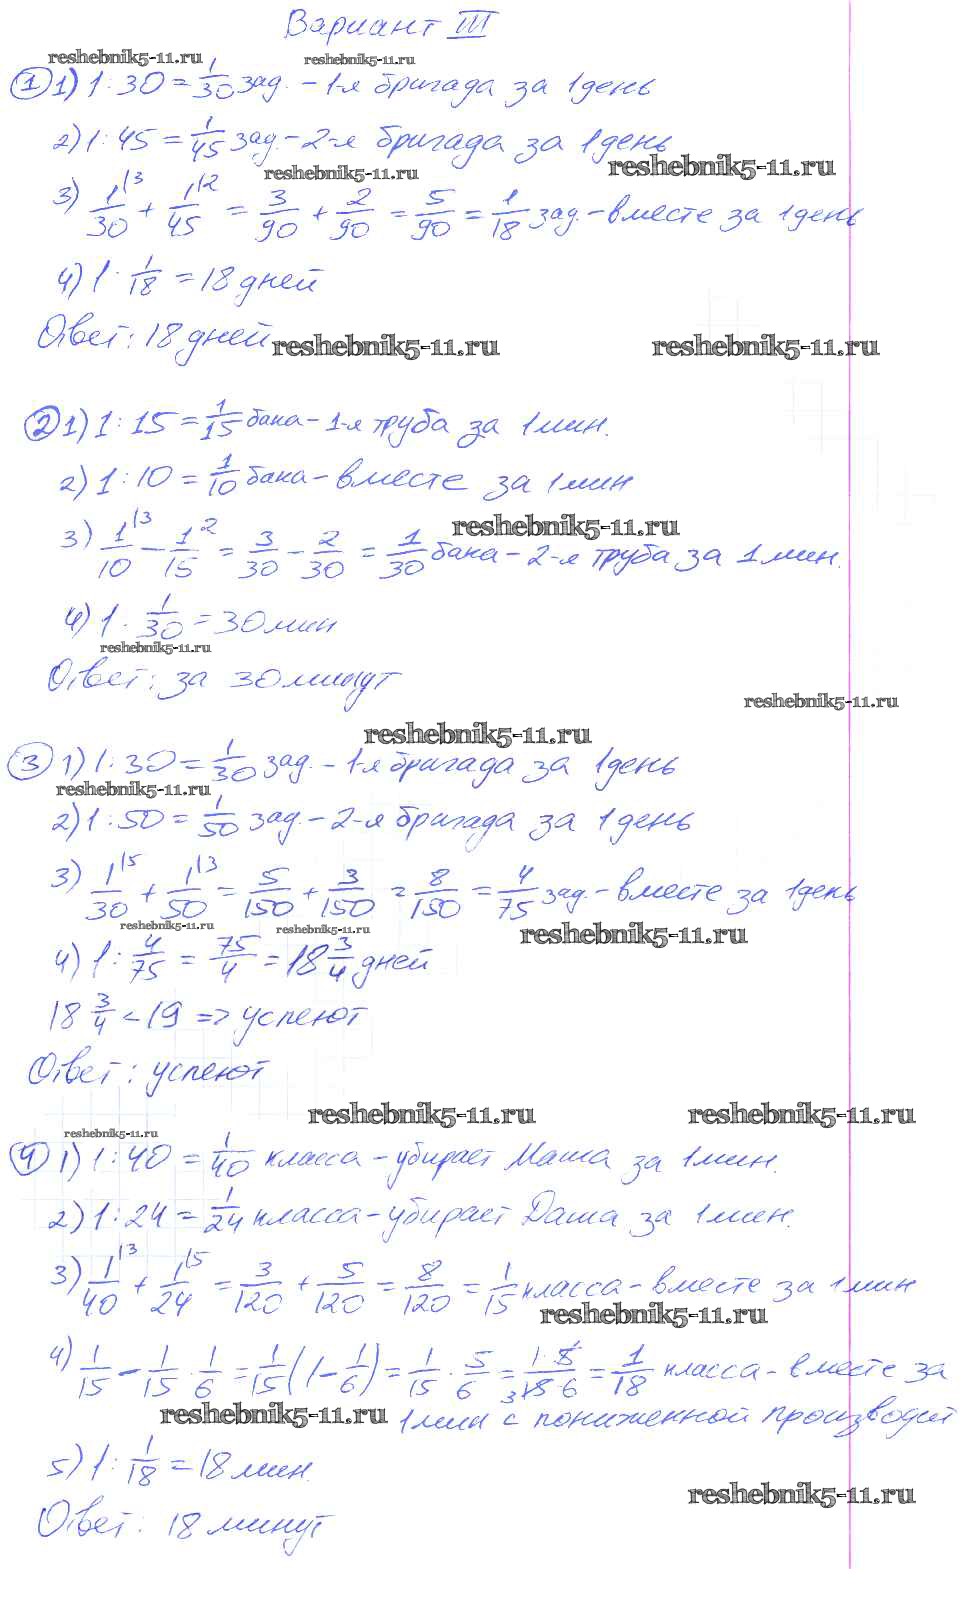 Вариант III
reshebnik5-11.ru reshebnik5-11.ru
① 1) 1 : 30 = 1/30 зад. - 1-я бригада за 1 день
2) 1 : 45 = 1/45 зад. - 2-я бригада за 1 день
reshebnik5-11.ru reshebnik5-11.ru
3) 1/30 |3 + 1/45 |2 = 3/90 + 2/90 = 5/90 = 1/18 зад. - вместе за 1 день
4) 1 · 1/18 = 18 дней
Ответ: 18 дней
reshebnik5-11.ru reshebnik5-11.ru
② 1) 1 : 15 = 1/15 бака - 1-я труба за 1 мин.
2) 1 : 10 = 1/10 бака - вместе за 1 мин
reshebnik5-11.ru
3) 1/10 |3 - 1/15 |2 = 3/30 - 2/30 = 1/30 бака - 2-я труба за 1 мин.
4) 1 · 1/30 = 30 мин
reshebnik5-11.ru
Ответ: за 30 минут
reshebnik5-11.ru
reshebnik5-11.ru
③ 1) 1 : 30 = 1/30 зад. - 1-я бригада за 1 день
reshebnik5-11.ru
2) 1 : 50 = 1/50 зад. - 2-я бригада за 1 день
3) 1/30 |5 + 1/50 |3 = 5/150 + 3/150 = 8/150 = 4/75 зад. - вместе за 1 день
reshebnik5-11.ru reshebnik5-11.ru reshebnik5-11.ru
4) 1 : 4/75 = 75/4 = 18 3/4 дней
18 3/4 < 19 => успеют
Ответ: успеют
reshebnik5-11.ru reshebnik5-11.ru
reshebnik5-11.ru
④ 1) 1 : 40 = 1/40 класса - убирает Маша за 1 мин.
2) 1 : 24 = 1/24 класса - убирает Даша за 1 мин.
3) 1/40 |3 + 1/24 |5 = 3/120 + 5/120 = 8/120 = 1/15 класса - вместе за 1 мин
reshebnik5-11.ru
4) 1/15 - 1/15 · 1/6 = 1/15 (1 - 1/6) = 1/15 · 5/6 = 1·5/15·6 = 1/18 класса - вместе за
reshebnik5-11.ru 1 мин с пониженной производит
5) 1 : 1/18 = 18 мин.
reshebnik5-11.ru
Ответ: 18 минут